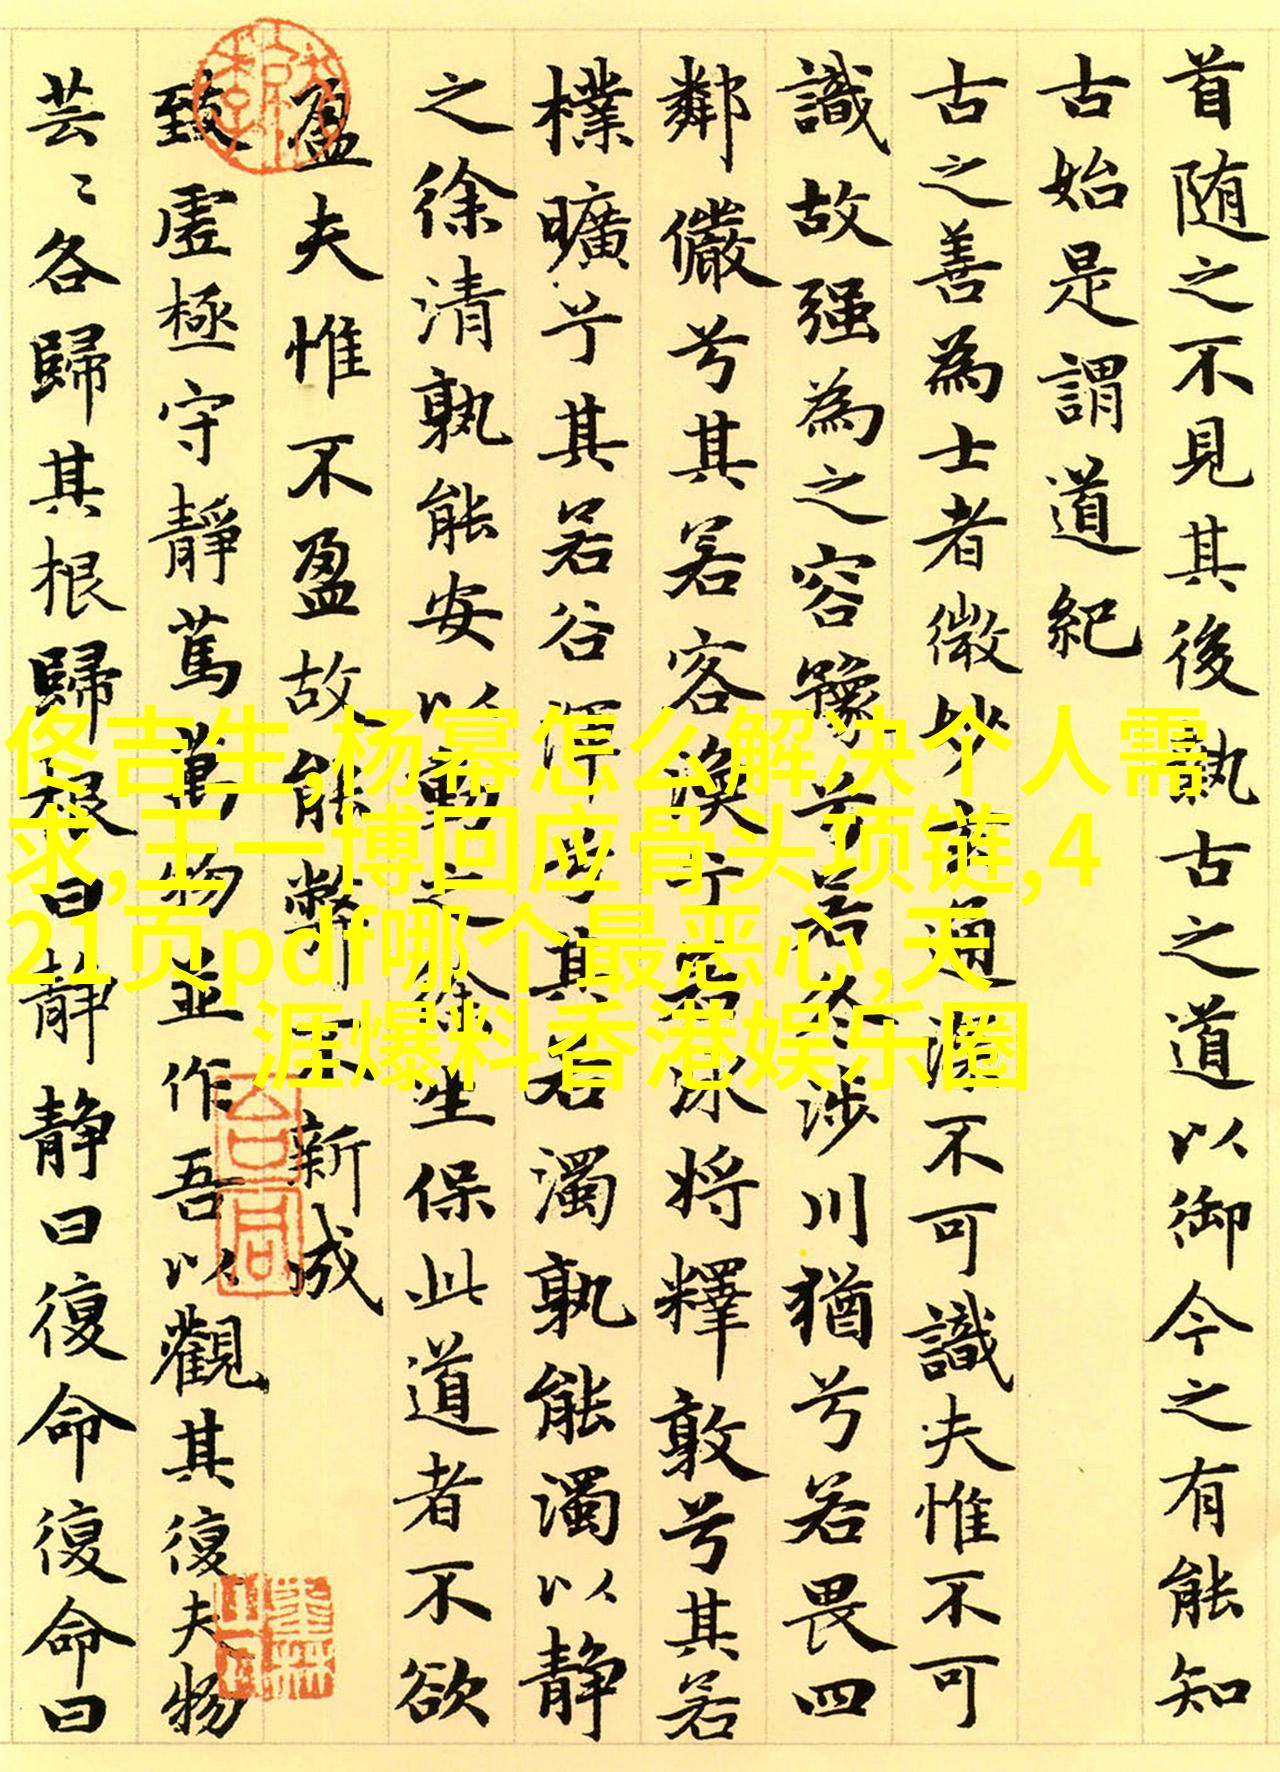 首随之不見其後執古之道以御今之有能知
古始是謂道紀
古之善為士者微妙玄通深不可識夫惟不可
識故强為之容豫兮若冬涉川猶兮若畏四
鄰儼兮其若客渙兮若冰將釋敦兮其若
樸曠兮其若谷渾兮其若濁孰能濁以静
之徐清孰能安以動之徐生保此道者不欲
盈夫惟不盈故能弊不新成
致虛極守靜篤萬物並作吾以觀其復夫物
芸〻各歸其根歸根曰静静曰復命復命曰
佟吉生,杨幂怎么解决个人需
求,王一博回应骨头项链,4
21页pdf哪个最恶心,天
涯爆料香港娱乐圈